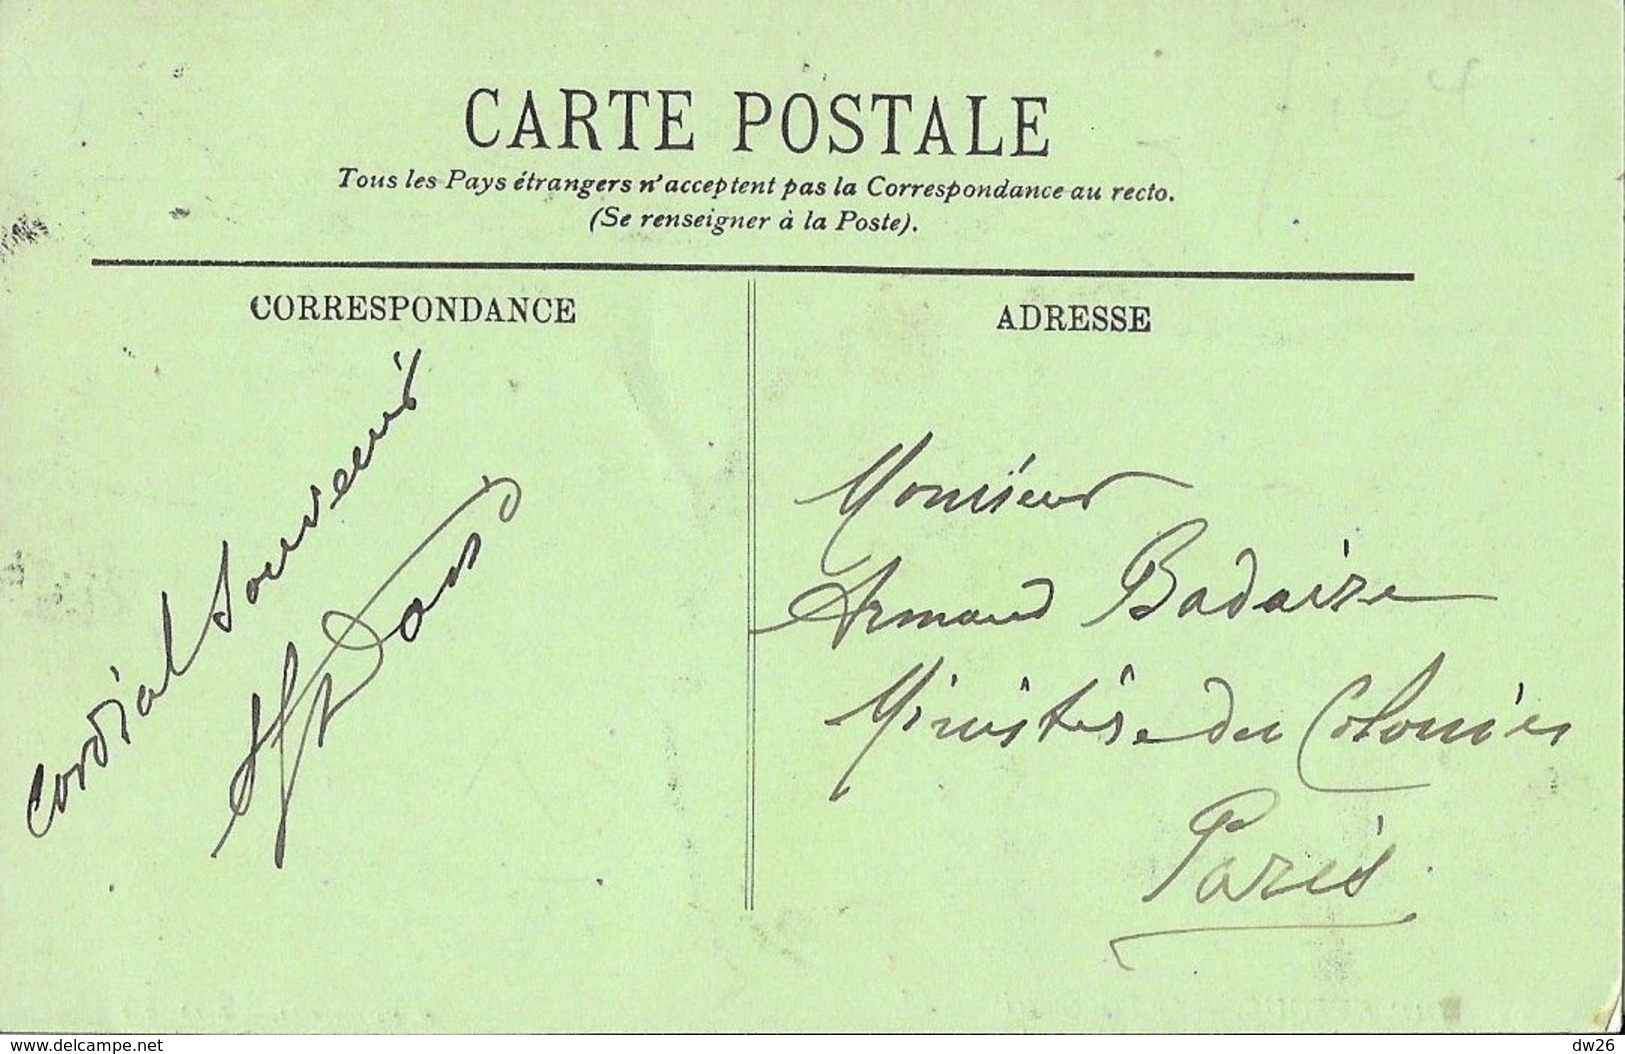 CARTE POSTALE
Tous les Pays étrangers n'acceptent pas la Correspondance au recto.
(Se renseigner à la Poste).
CORRESPONDANCE
Cordial Souvenir
ADRESSE
Monsieur
Armand Badaire
Ministère du Colonies
Paris
www.delcampe.net
dw26